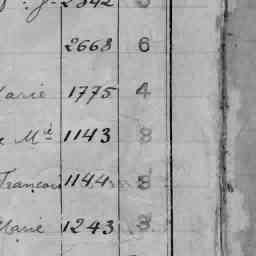 2842
2668 6
Marie 1775 4
Me 1143 8
François 1144 8
Marie 1243 8